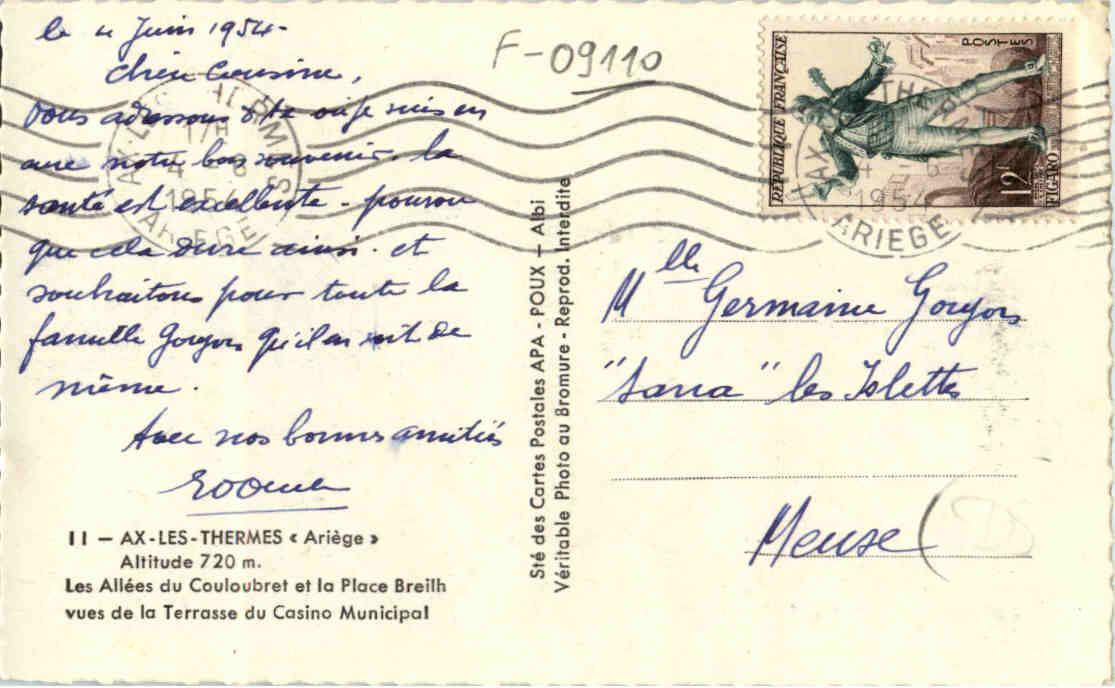 le 4 Juin 1954-
Chère Cousine,
Vous adressons d'Ax où je suis en
cure notre bon souvenir. la
santé est excellente - pourvu
que cela dure ainsi. et
souhaitons pour toute la
famille Goujon qu'il en soit de
même.
Avec nos bonnes amitiés
11 — AX-LES-THERMES « Ariège »
Altitude 720 m.
Les Allées du Couloubret et la Place Breilh
vues de la Terrasse du Casino Municipal
Sté des Cartes Postales APA - POUX — Albi
Véritable Photo au Bromure - Reprod. Interdite
F-09110
RÉPUBLIQUE FRANÇAISE
POSTES
12F
FIGARO
AX-LES-THERMES
17H
4 - 6
1954
ARIEGE
AX THERM
4 - 6
1954
ARIEGE
Mlle Germaine Goujon
"Sana" les Islettes
Meuse